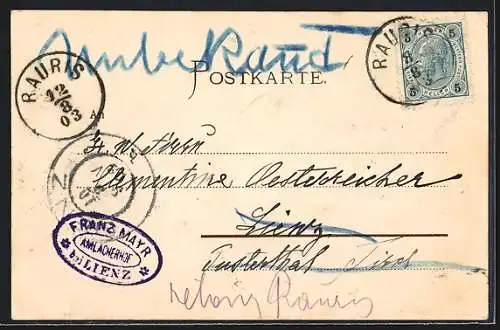 Unbekannt
POSTKARTE.
RAURIS
2/8
03
RAURIS
5 5
5 5
An
Clementine Oesterreicher
Lienz
Pusterthal Tirol
FRANZ MAYR
AMLACHERHOF
bei LIENZ
retour Rauris